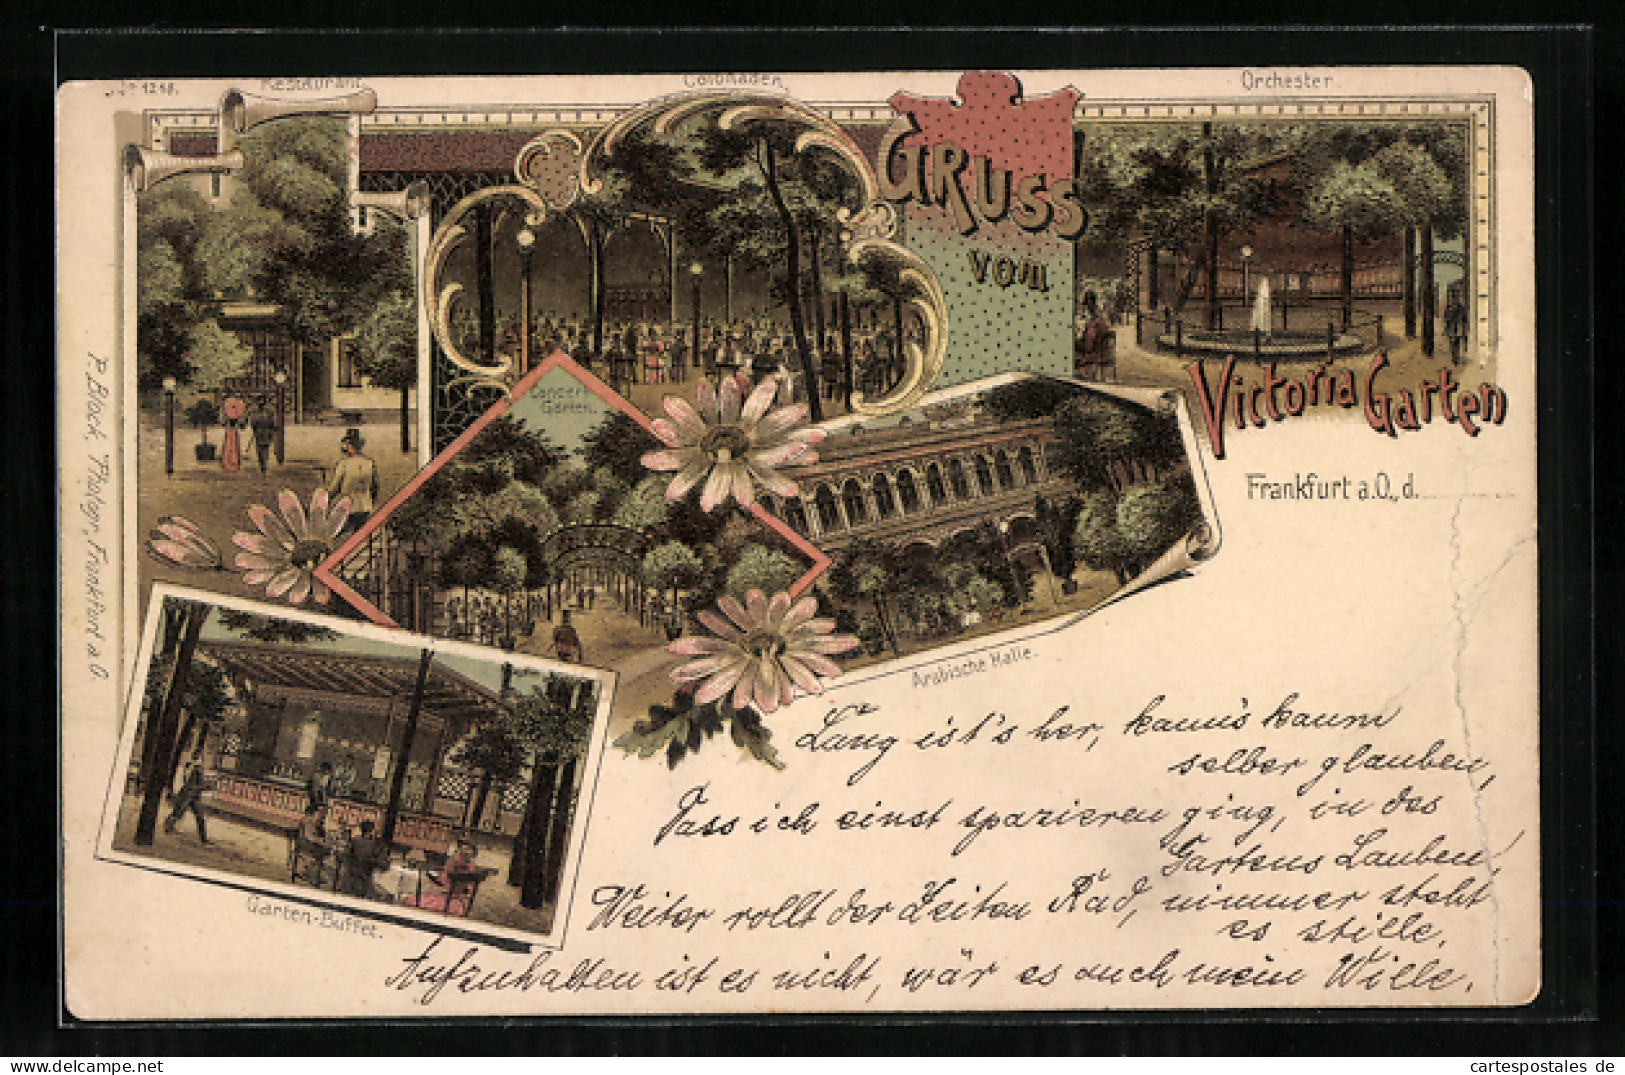 No 1218.
Restaurant.
Colonnaden.
Orchester.
GRUSS
VOM
Victoria Garten
Frankfurt a.O., d.
Concert-
Garten.
Arabische Halle.
Garten-Buffet.
P. Block, Photogr., Frankfurt a. O.
Lang ist's her, kann's kaum
selber glauben,
Dass ich einst spazieren ging, in des
Gartens Lauben,
Weiter rollt der Zeiten Rad, nimmer steht
es stille,
Aufzuhalten ist es nicht, wär es auch mein Wille.
cartespostales de